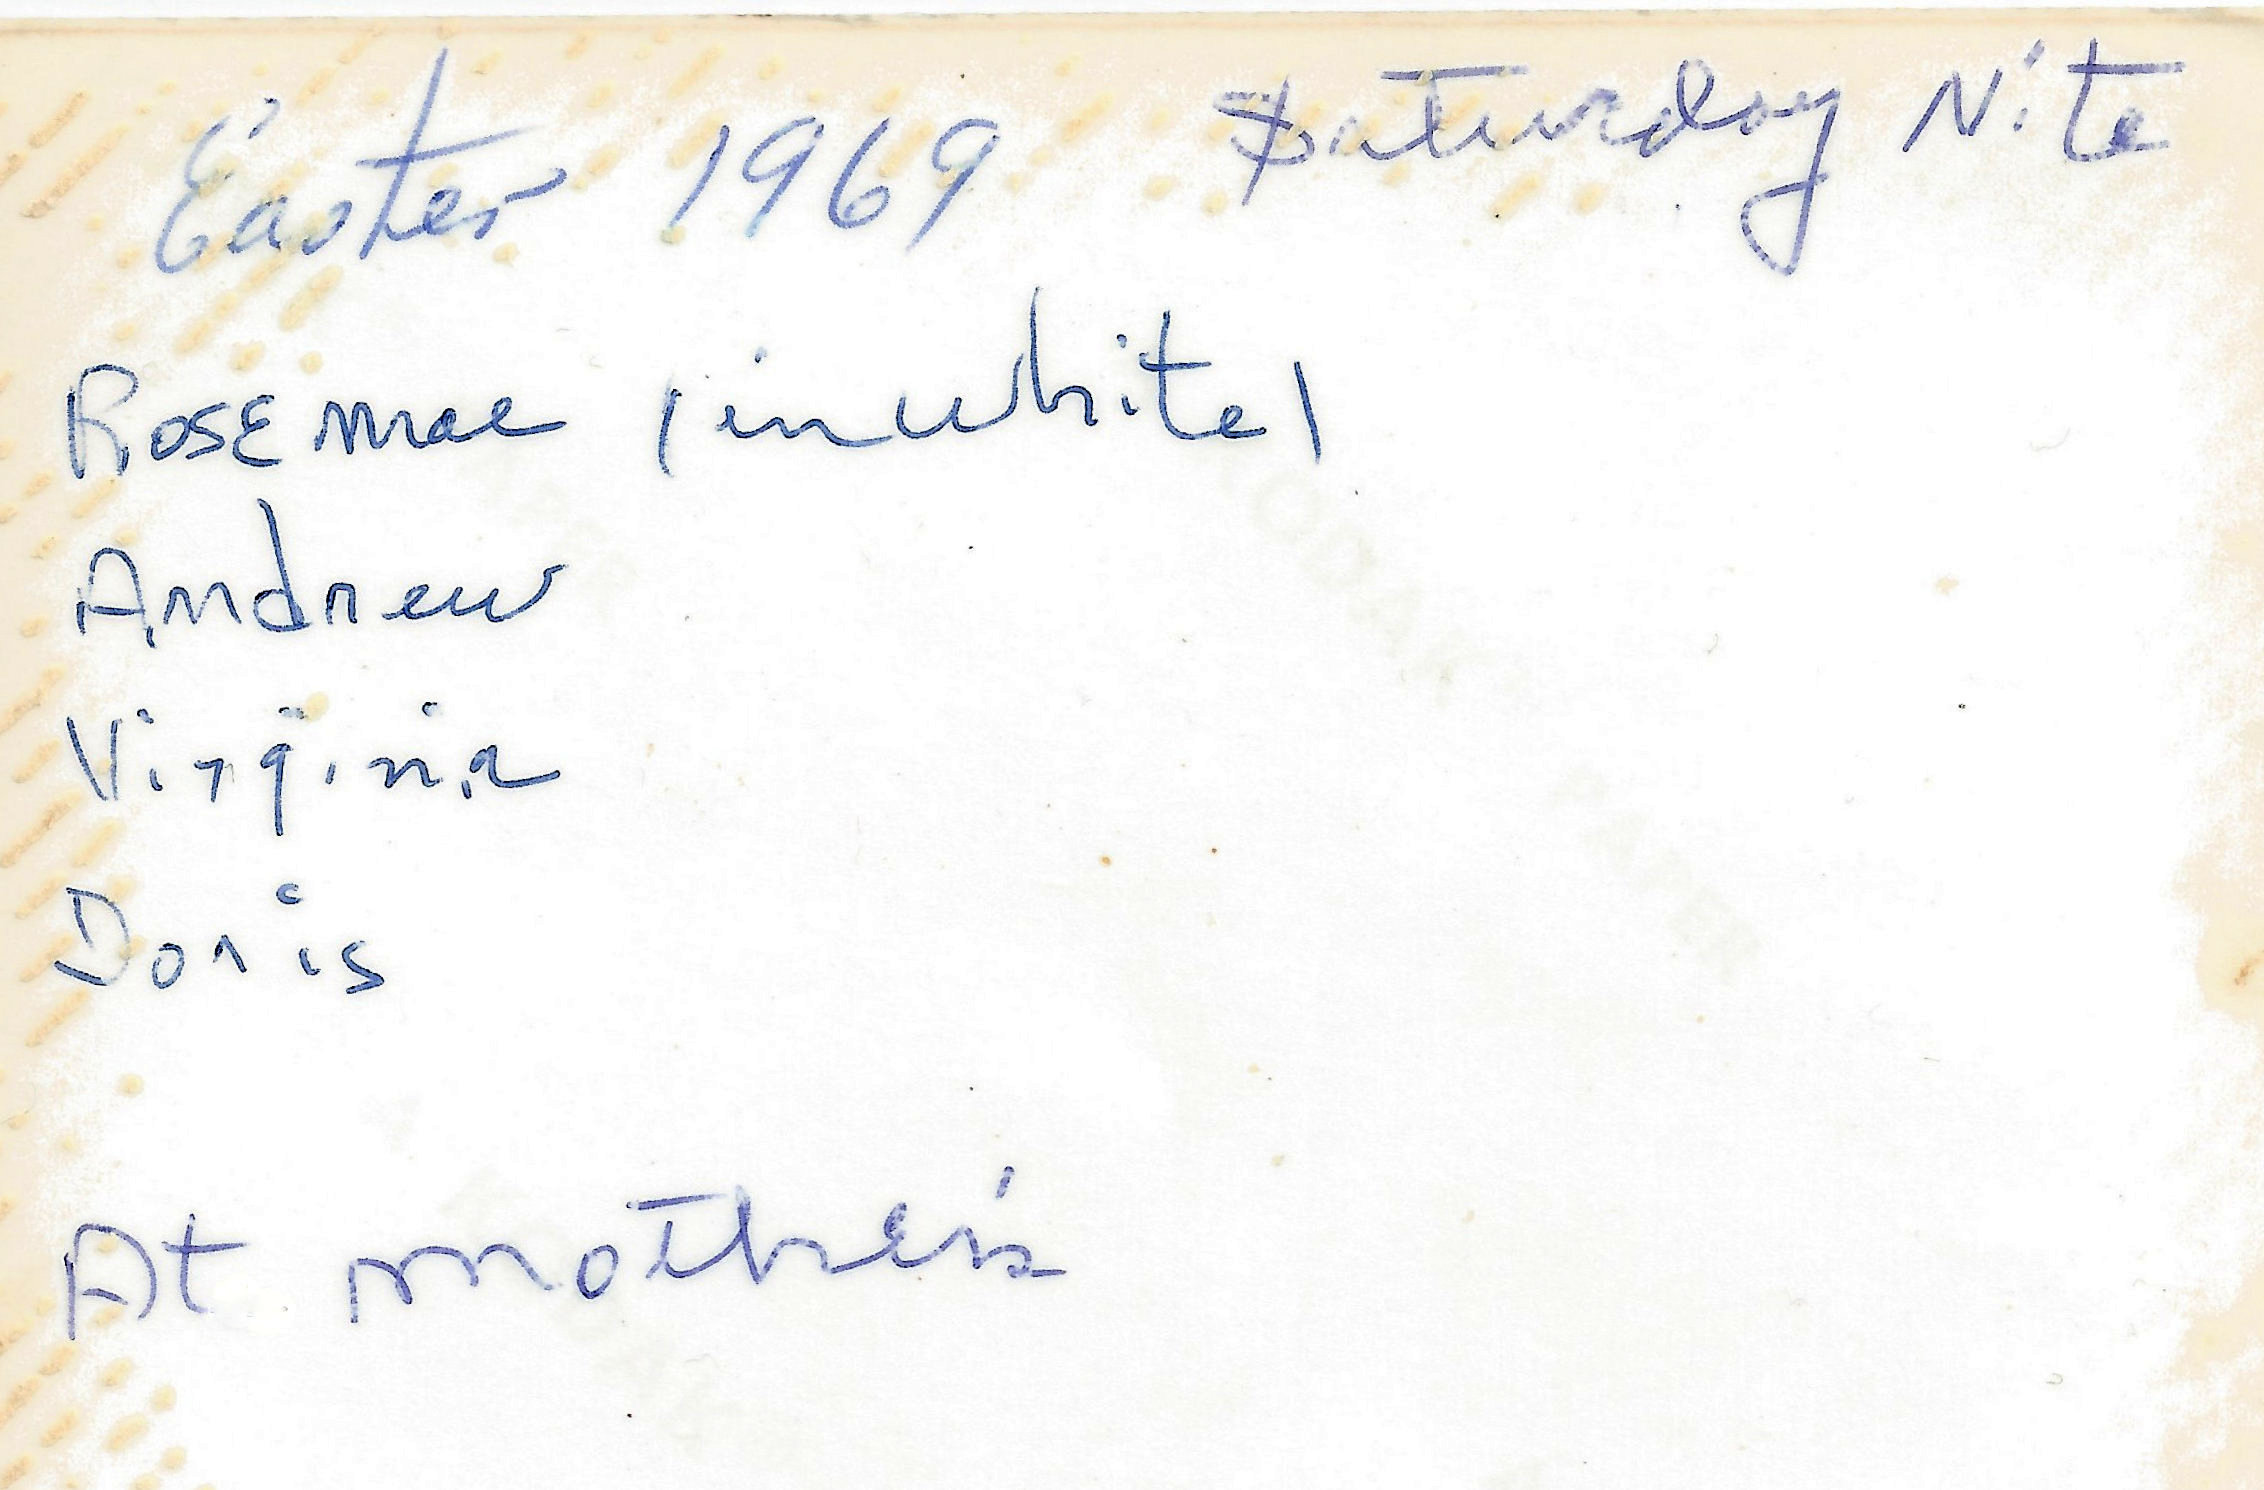 Easter 1969 Saturday Nite
Rose mae (in white)
Andrew
Virginia
Doris
At mother's